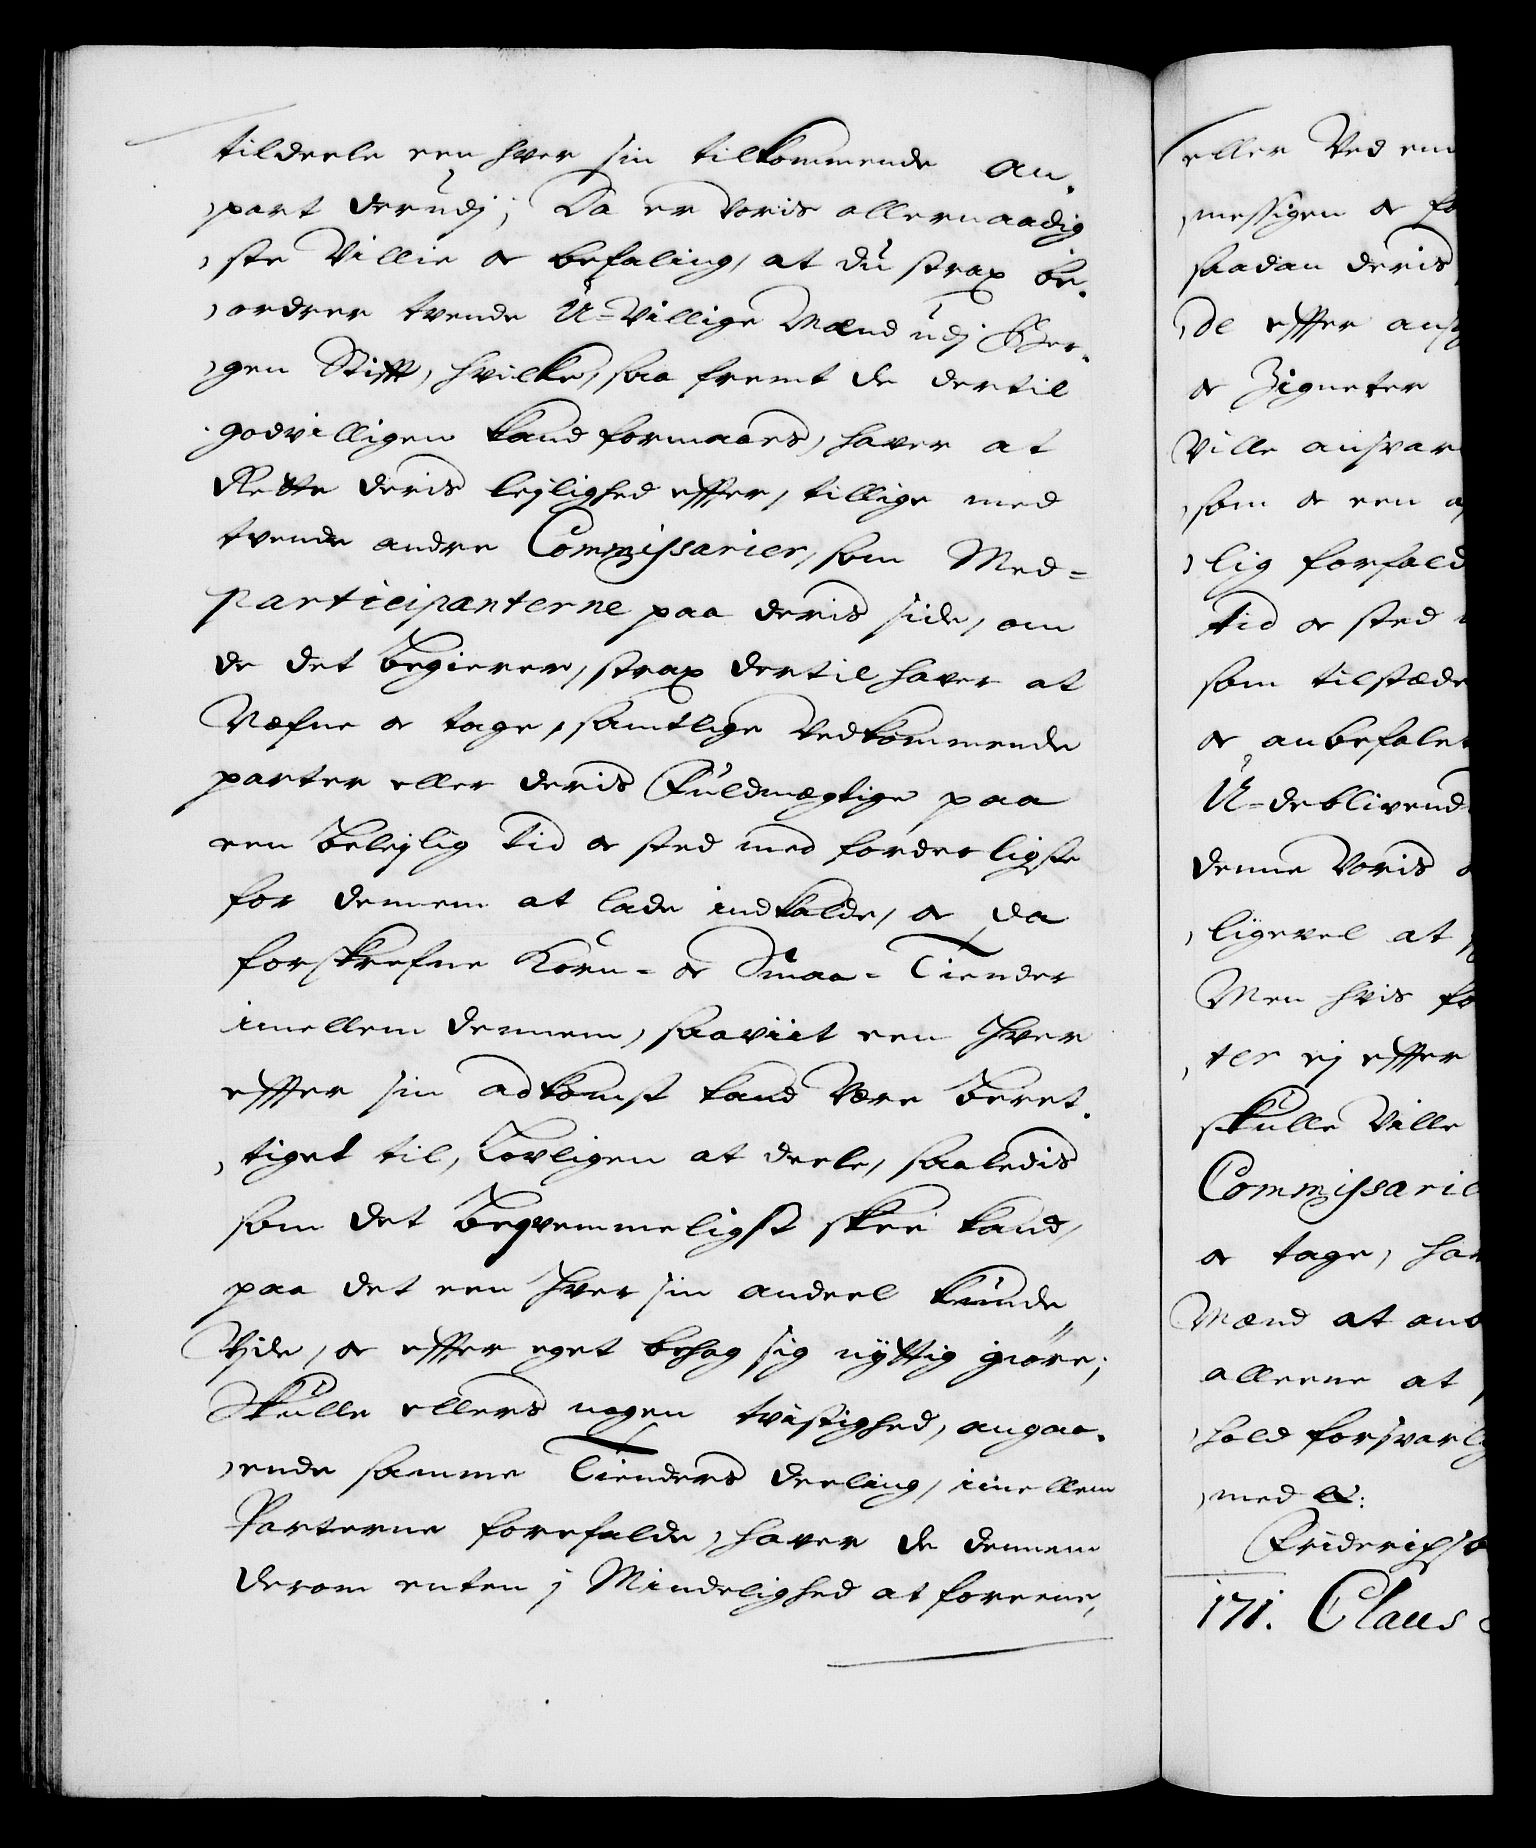 tildeele een hver sin tilkommende an,
,part derudj; Da er Voris allernaadig
,ste Villie oc befaling, at du strax be,
,ordrer tvende U-Villige Mænd udj Ber,
,gen Stifft, hvilke, saa fremt de dertil
godvilligen kand formaaes, haver at
Rette deris leylighed effter, tillige med
tvende andre Commissarier, som Med-
Participanterne paa deris side, om
de det begierer, strax dertil haver at
Næfne oc tage, samtlige Vedkommende
parter eller deris Fuldmægtige paa
een beleylig Tid oc sted med forderligste
for dennem at lade indkalde, oc da
forskrefne Korn- oc Smaa-Tiender
imellem dennem, saaviit een hver
effter sin adkomst kand Være beret,
,tiget til, Lovligen at deele, saaledis
som det beqvemmeligst skee kand,
paa det een hver sin andeel kunde
Vide, oc effter eget behag sig nyttig giøre;
Skulle ellers nogen tvistighed, angaa,
,ende samme Tienders deeling, imellem
Parterne forefalde, haver de dennem
derom enten j Mindelighed at foreene,
eller Ved
,messigen oc
saadan deris
,de effter
oc Zigneter
Ville
,som oc een
,lig forfald
tid oc sted
som tilstæde
oc anbefalet
U-deblivend
denne Voris
,ligevel at
Men hvis
,ter ej effter
skulle Ville
Commissarie
oc tage,
Mænd at
alleene at
,hold
,med &:
Friderichs
171. Claus